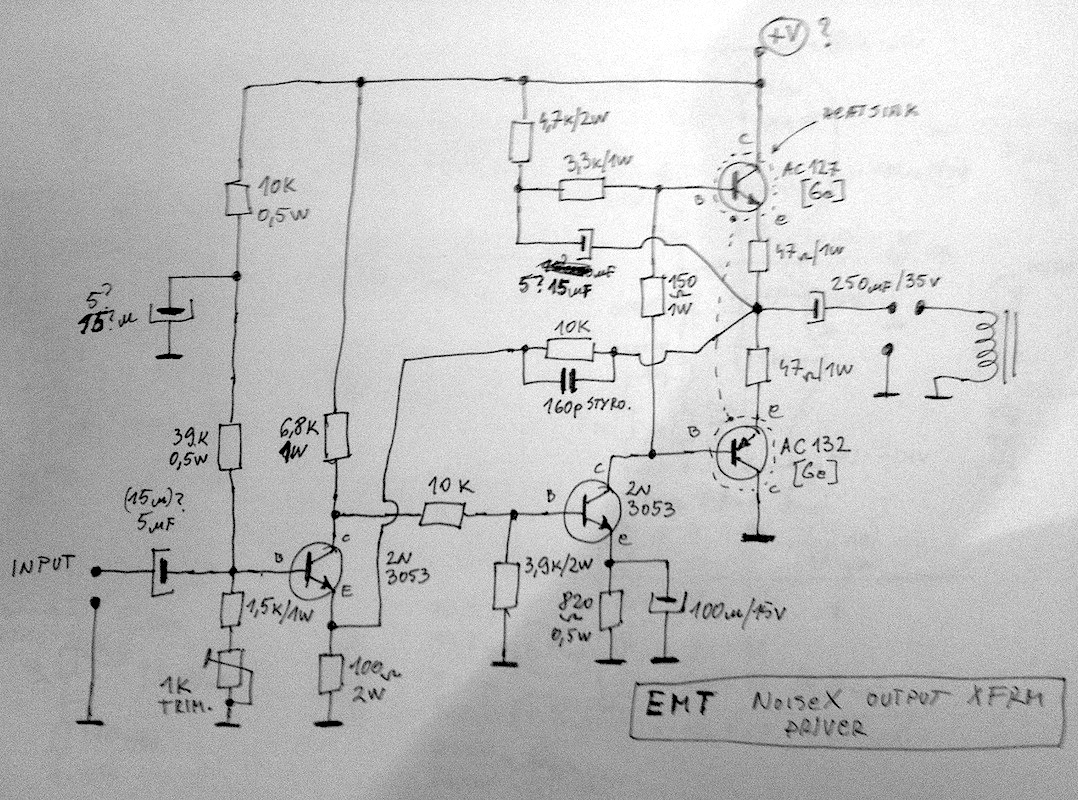 +V ?
HEATSINK
4,7K/2W
C
3,3K/1W
AC127
[Ge]
10K
0,5W
B
e
47Ω/1W
5? 15µF
150
Ω
1W
250µF/35V
5?
15? µ
10K
160p STYRO.
47Ω/1W
e
B
AC132
[Ge]
C
39K
0,5W
6,8K
1W
(15µ)?
5µF
10K
C
2N
3053
B
e
INPUT
B
C
2N
3053
E
3,9K/2W
1,5K/1W
820
Ω
0,5W
100µ/15V
1K
TRIM.
100Ω
2W
EMT NoiseX OUTPUT XFRM
DRIVER